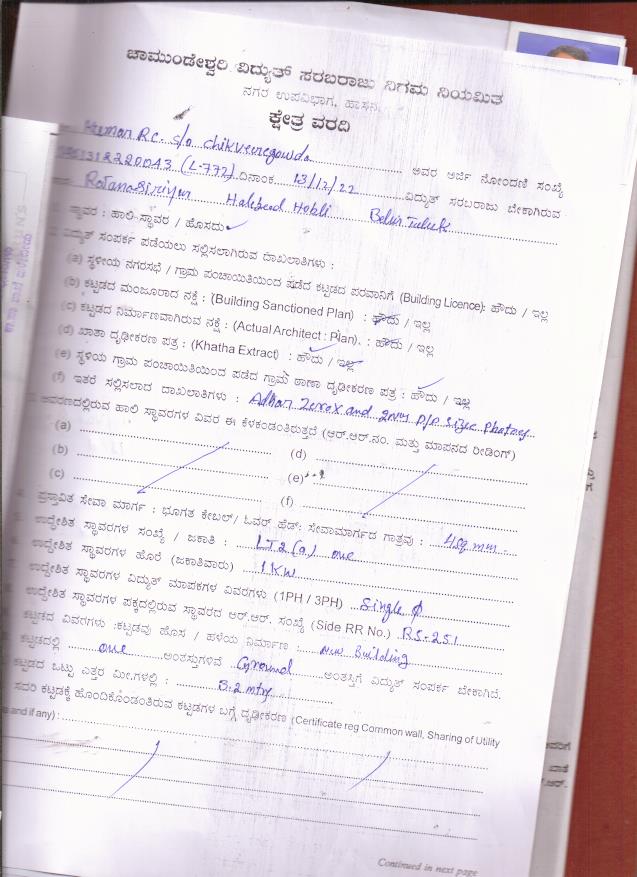 ಚಾಮುಂಡೇಶ್ವರಿ ವಿದ್ಯುತ್ ಸರಬರಾಜು ನಿಗಮ ನಿಯಮಿತ
ನಗರ ಉಪವಿಭಾಗ, ಹಾಸನ,
ಕ್ಷೇತ್ರ ವರದಿ
R.C. S/o Chikveeregowda ಅವರ ಅರ್ಜಿ ನೋಂದಣಿ ಸಂಖ್ಯೆ
(L-772) ದಿನಾಂಕ 13/12/22 ವಿದ್ಯುತ್ ಸರಬರಾಜು ಬೇಕಾಗಿರುವ
Halebeed Hobli Belur Taluk
ಸ್ಥಾವರ : ಹಾಲಿ ಸ್ಥಾವರ / ಹೊಸದು
ವಿದ್ಯುತ್ ಸಂಪರ್ಕ ಪಡೆಯಲು ಸಲ್ಲಿಸಲಾಗಿರುವ ದಾಖಲಾತಿಗಳು :
(a) ಸ್ಥಳೀಯ ನಗರಸಭೆ / ಗ್ರಾಮ ಪಂಚಾಯಿತಿಯಿಂದ ಪಡೆದ ಕಟ್ಟಡದ ಪರವಾನಿಗೆ (Building Licence): ಹೌದು / ಇಲ್ಲ
(b) ಕಟ್ಟಡದ ಮಂಜೂರಾದ ನಕ್ಷೆ : (Building Sanctioned Plan) : ಹೌದು / ಇಲ್ಲ
(c) ಕಟ್ಟಡದ ನಿರ್ಮಾಣವಾಗಿರುವ ನಕ್ಷೆ : (Actual Architect : Plan). : ಹೌದು / ಇಲ್ಲ
(d) ಖಾತಾ ದೃಢೀಕರಣ ಪತ್ರ : (Khatha Extract) : ಹೌದು / ಇಲ್ಲ
(e) ಸ್ಥಳಿಯ ಗ್ರಾಮ ಪಂಚಾಯಿತಿಯಿಂದ ಪಡೆದ ಗ್ರಾಮ ಠಾಣಾ ದೃಢೀಕರಣ ಪತ್ರ : ಹೌದು / ಇಲ್ಲ
(f) ಇತರೆ ಸಲ್ಲಿಸಲಾದ ದಾಖಲಾತಿಗಳು : Adhar Zerox and P/P Size Photos
ಆವರಣದಲ್ಲಿರುವ ಹಾಲಿ ಸ್ಥಾವರಗಳ ವಿವರ ಈ ಕೆಳಕಂಡಂತಿರುತ್ತದೆ (ಆರ್.ಆರ್.ನಂ. ಮತ್ತು ಮಾಪನದ ರೀಡಿಂಗ್)
(a) (d)
(b) (e)
(c) (f)
ಪ್ರಸ್ತಾವಿತ ಸೇವಾ ಮಾರ್ಗ : ಭೂಗತ ಕೇಬಲ್/ ಓವರ್ ಹೆಡ್: ಸೇವಾಮಾರ್ಗದ ಗಾತ್ರವು : 4sq mm
ಉದ್ದೇಶಿತ ಸ್ಥಾವರಗಳ ಸಂಖ್ಯೆ / ಜಕಾತಿ : LT2(a) one
ಉದ್ದೇಶಿತ ಸ್ಥಾವರಗಳ ಹೊರೆ (ಜಕಾತಿವಾರು) 1 KW
ಉದ್ದೇಶಿತ ಸ್ಥಾವರಗಳ ವಿದ್ಯುತ್ ಮಾಪಕಗಳ ವಿವರಗಳು (1PH / 3PH) Single φ
ಉದ್ದೇಶಿತ ಸ್ಥಾವರಗಳ ಪಕ್ಕದಲ್ಲಿರುವ ಸ್ಥಾವರದ ಆರ್.ಆರ್. ಸಂಖ್ಯೆ (Side RR No.) RS-251
ಕಟ್ಟಡದ ವಿವರಗಳು :ಕಟ್ಟಡವು ಹೊಸ / ಹಳೆಯ ನಿರ್ಮಾಣ : New Building
ಕಟ್ಟಡದಲ್ಲಿ one ಅಂತಸ್ತುಗಳಿವೆ Ground ಅಂತಸ್ತಿಗೆ ವಿದ್ಯುತ್ ಸಂಪರ್ಕ ಬೇಕಾಗಿದೆ.
ಕಟ್ಟಡದ ಒಟ್ಟು ಎತ್ತರ ಮೀ.ಗಳಲ್ಲಿ : 3.2 mtrs
ಸದರಿ ಕಟ್ಟಡಕ್ಕೆ ಹೊಂದಿಕೊಂಡಂತಿರುವ ಕಟ್ಟಡಗಳ ಬಗ್ಗೆ ದೃಢೀಕರಣ (Certificate reg Common wall, Sharing of Utility
and if any) :
Continued in next page